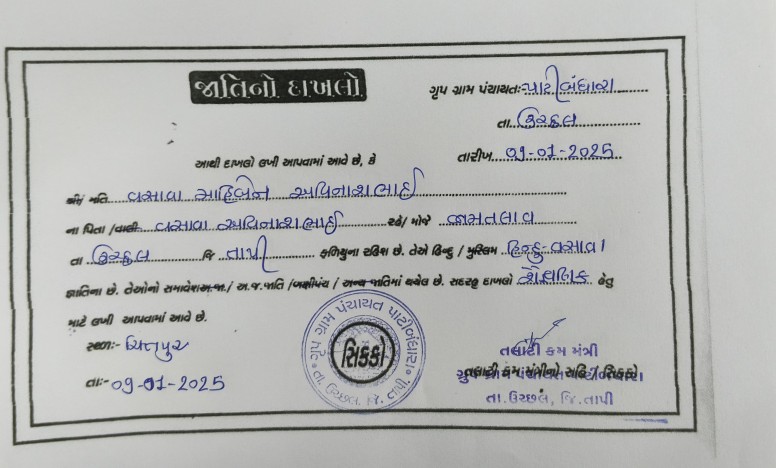 જાતિનો દાખલો
ગૃપ ગ્રામ પંચાયતઃ- પાટીબંધારા
તા. ઉચ્છલ
આથી દાખલો લખી આપવામાં આવે છે, કે
તારીખ 09-01-2025
શ્રી/ મતિ વસાવા માહિબેન અવિનાશભાઈ
ના પિતા /વાલી વસાવા અવિનાશભાઈ રહે/ મોજે જામતલાવ
તા ઉચ્છલ જિ તાપી ફળિયુના રહિશ છે. તેઓ હિન્દુ / મુસ્લિમ હિન્દુ-વસાવા
જ્ઞાતિના છે. તેઓનો સમાવેશ અ.જા/ અ.જ.જાતિ /બક્ષીપંચ / અન્ય જાતિમાં થયેલ છે. સદરહુ દાખલો શૈક્ષણિક હેતુ
માટે લખી આપવામાં આવે છે.
સ્થળઃ-
તાઃ- 09-01-2025
ગૃપ ગ્રામ પંચાયત પાટીબંધારા
સિક્કો
તા. ઉચ્છલ, જિ. તાપી.
તલાટી કમ મંત્રી
તલાટી કમ મંત્રીની સહિ / સિક્કો
ગૃપ ગ્રામ પંચાયત પાટીબંધારા
તા. ઉચ્છલ, જિ. તાપી